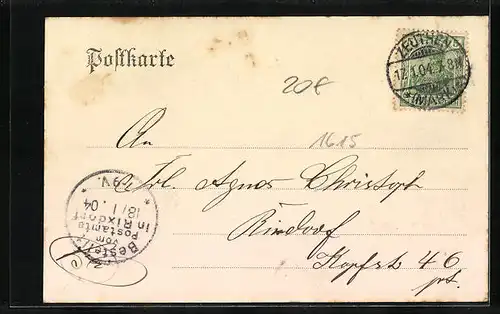 Postkarte
ZEUTHEN
17.1.04.7-8N.
*(MARK)*
20€
1615
An
Frl. Agnes Christoph
Rixdorf
Kopfst 46
pt.
Bestellt
vom
Postamte
in Rixdorf
18/1.04